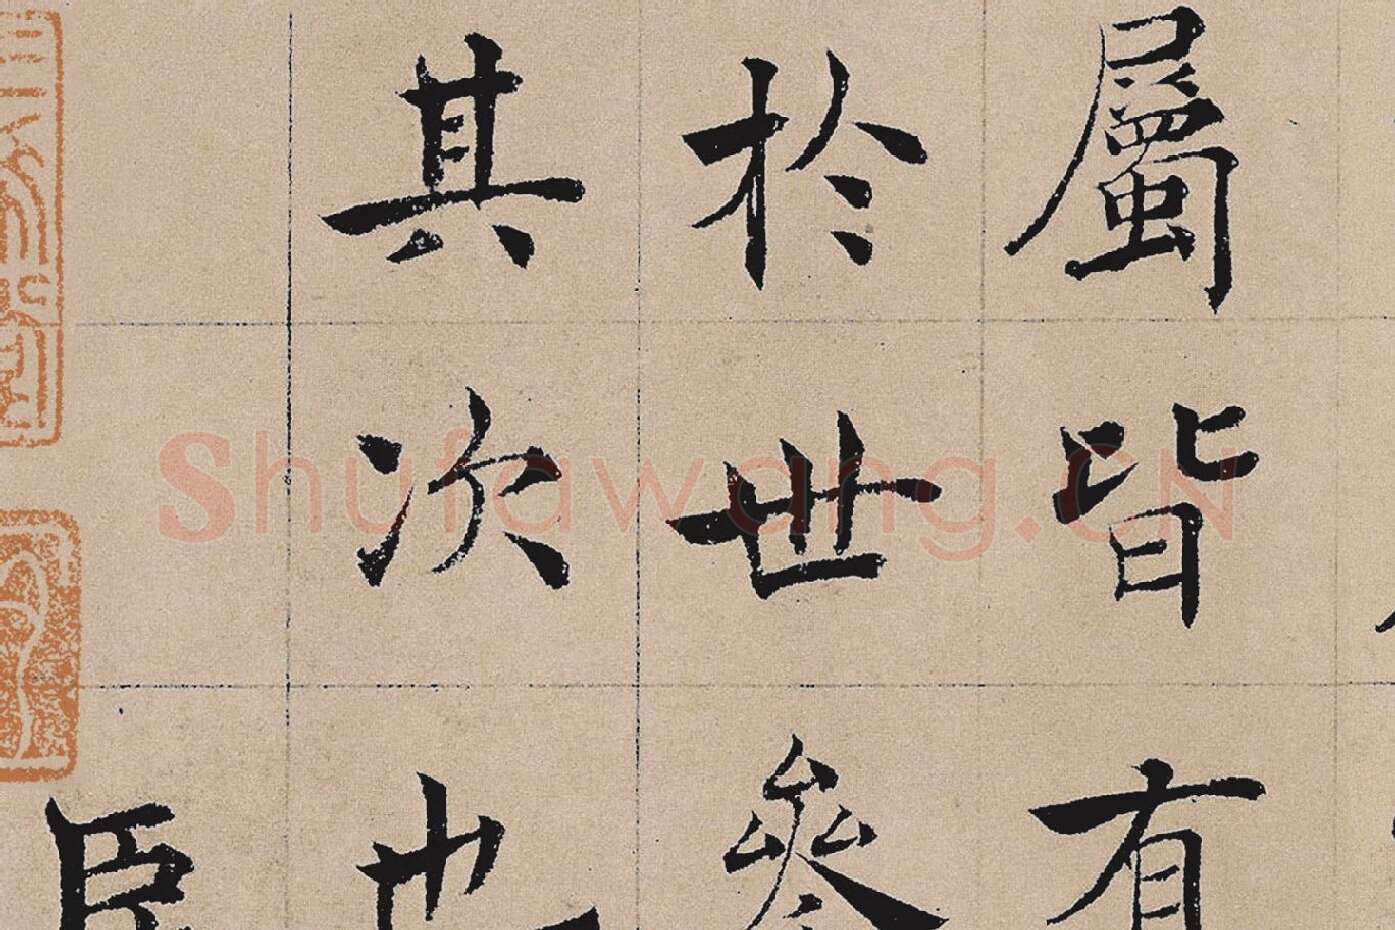 屬皆有
於世參
其次也
臣
Shufawang.CN